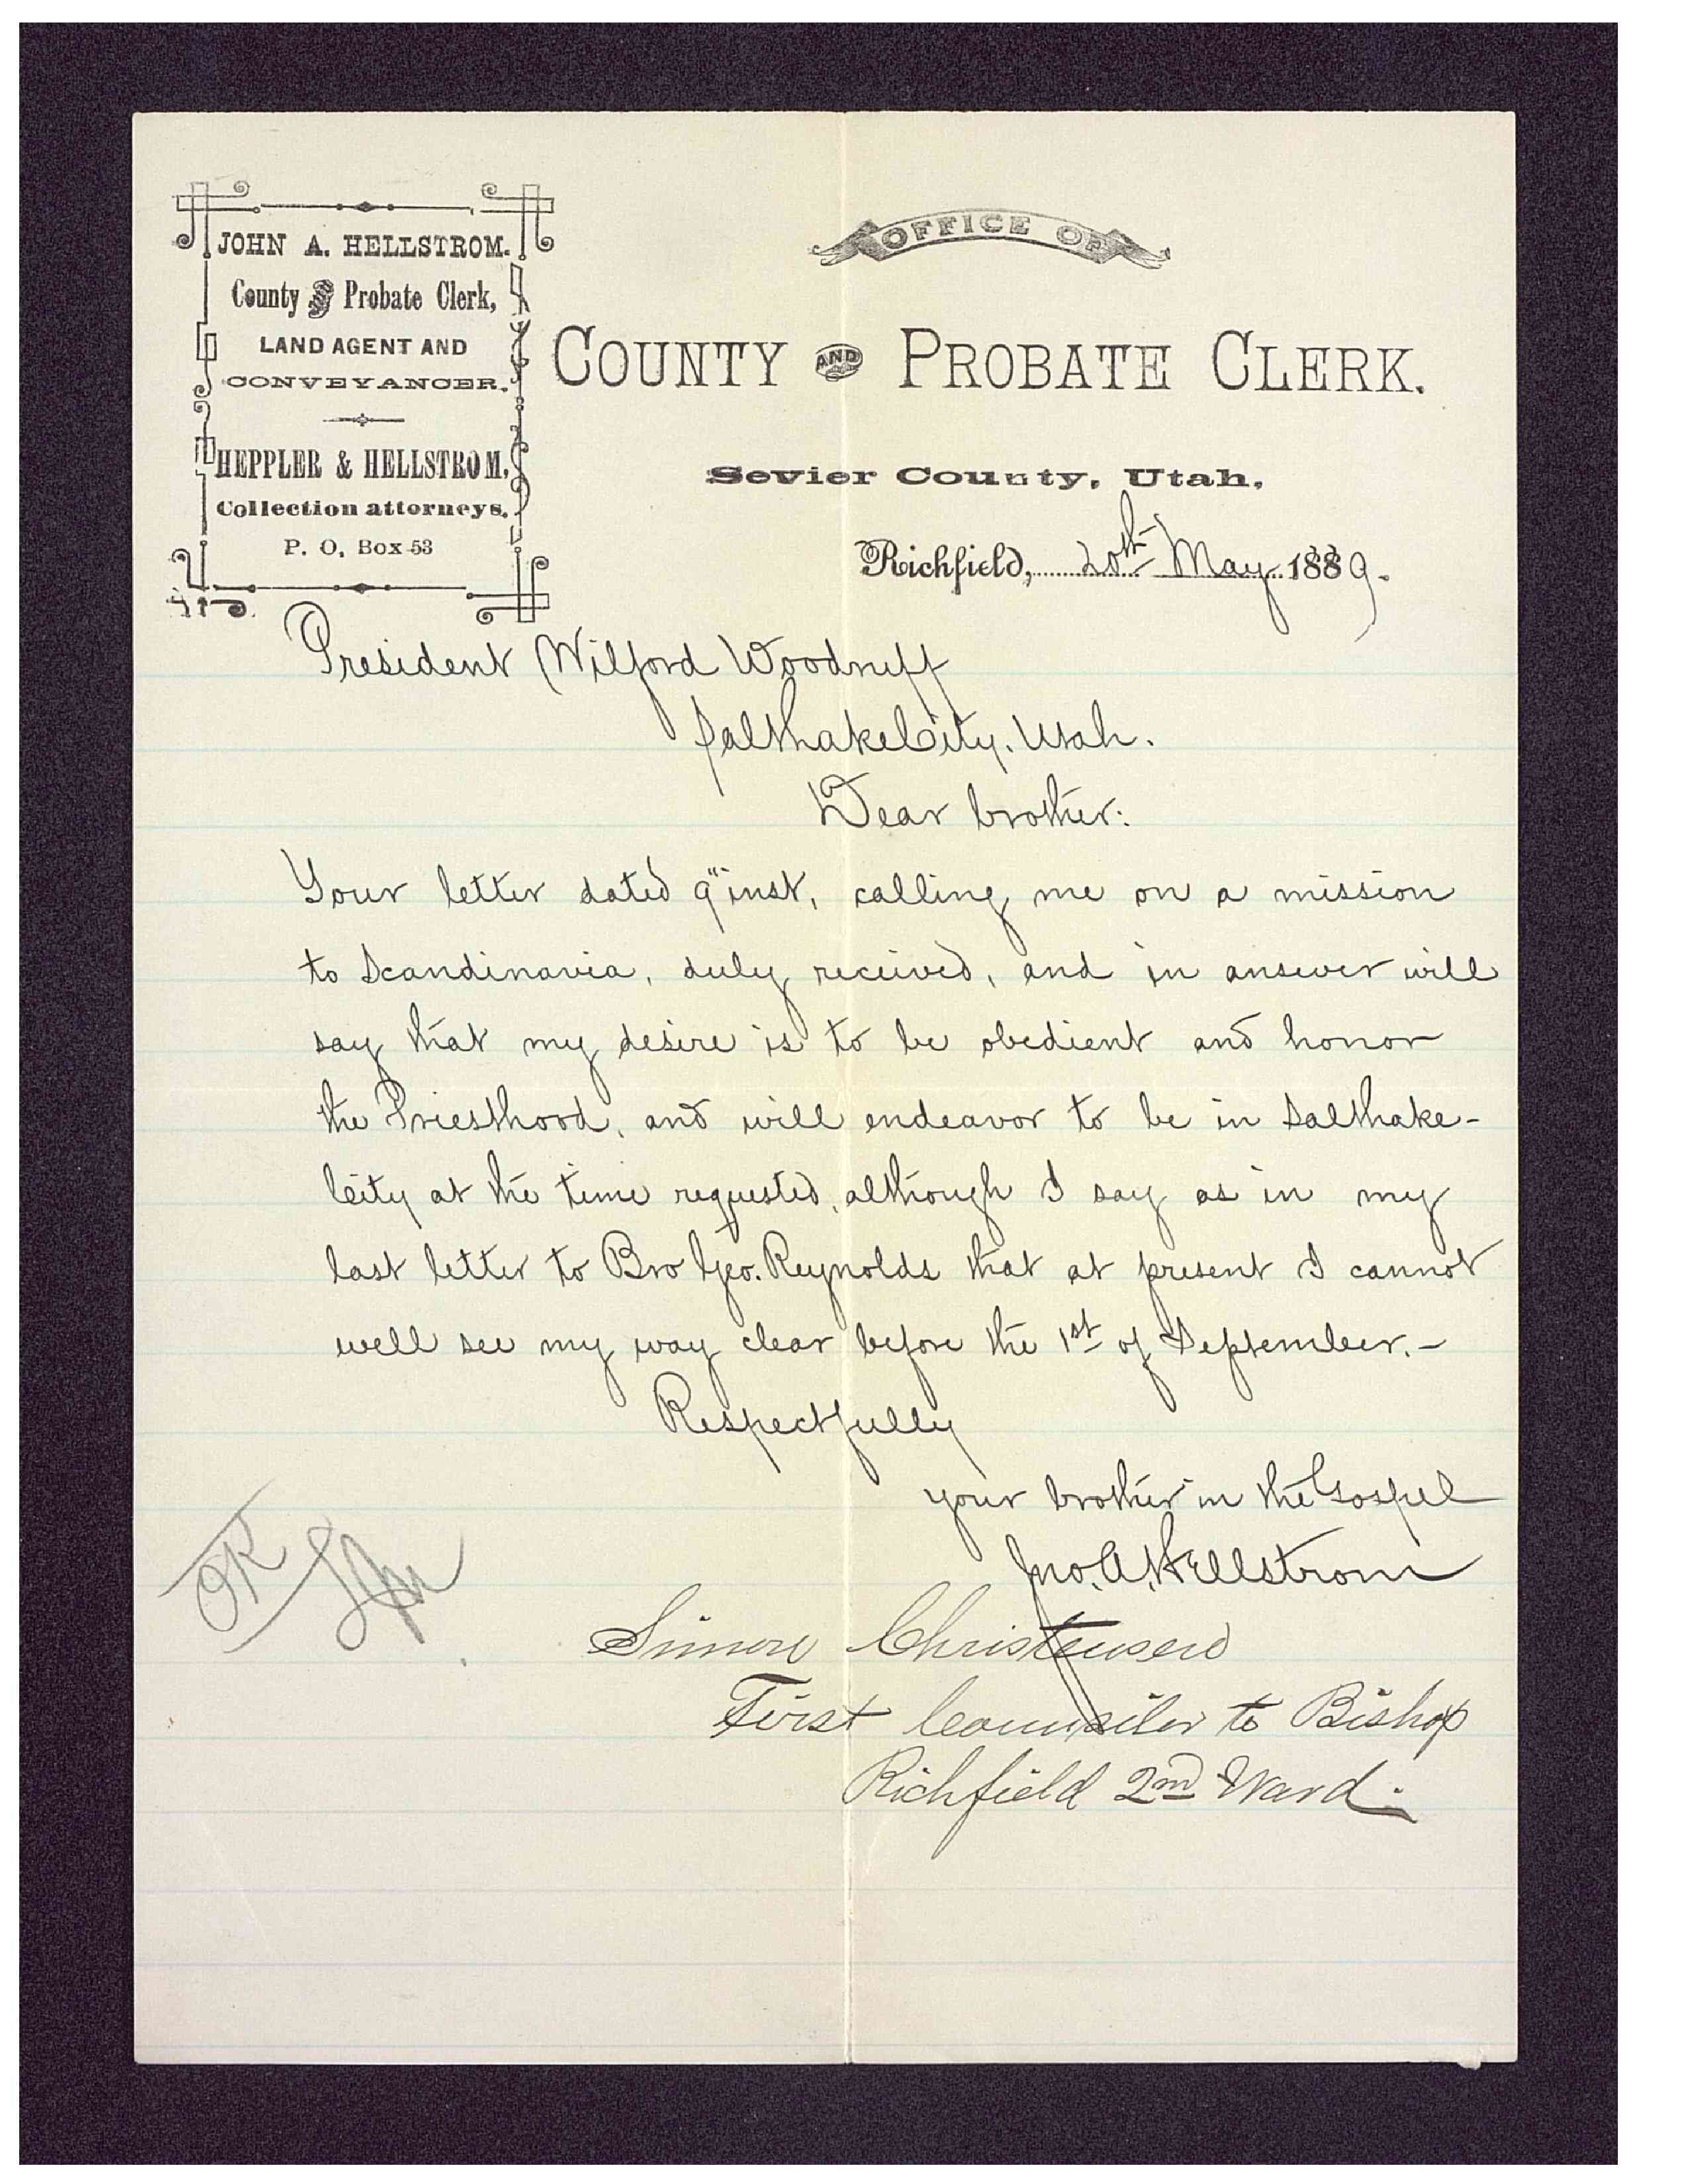 JOHN A. HELLSTROM.
County and Probate Clerk,
LAND AGENT AND
CONVEYANCER.
HEPPLER & HELLSTROM,
Collection attorneys.
P. O, Box 53
OFFICE OF
COUNTY AND PROBATE CLERK.
Sevier County, Utah,
Richfield, 20th May 1889.
President Wilford Woodruff
Salt Lake City. Utah.
Dear brother:
Your letter dated 9" inst, calling me on a mission
to Scandinavia, duly received, and in answer will
say that my desire is to be obedient and honor
the Priesthood, and will endeavor to be in Salt Lake-
City at the time requested, although I say as in my
last letter to Bro Geo. Reynolds that at present I cannot
well see my way clear before the 1st of September.-
Respectfully
your brother in the Gospel
Jno. A. Hellstrom
Simon Christensen
First Counsiler to Bishop
Richfield 2nd Ward.
OK